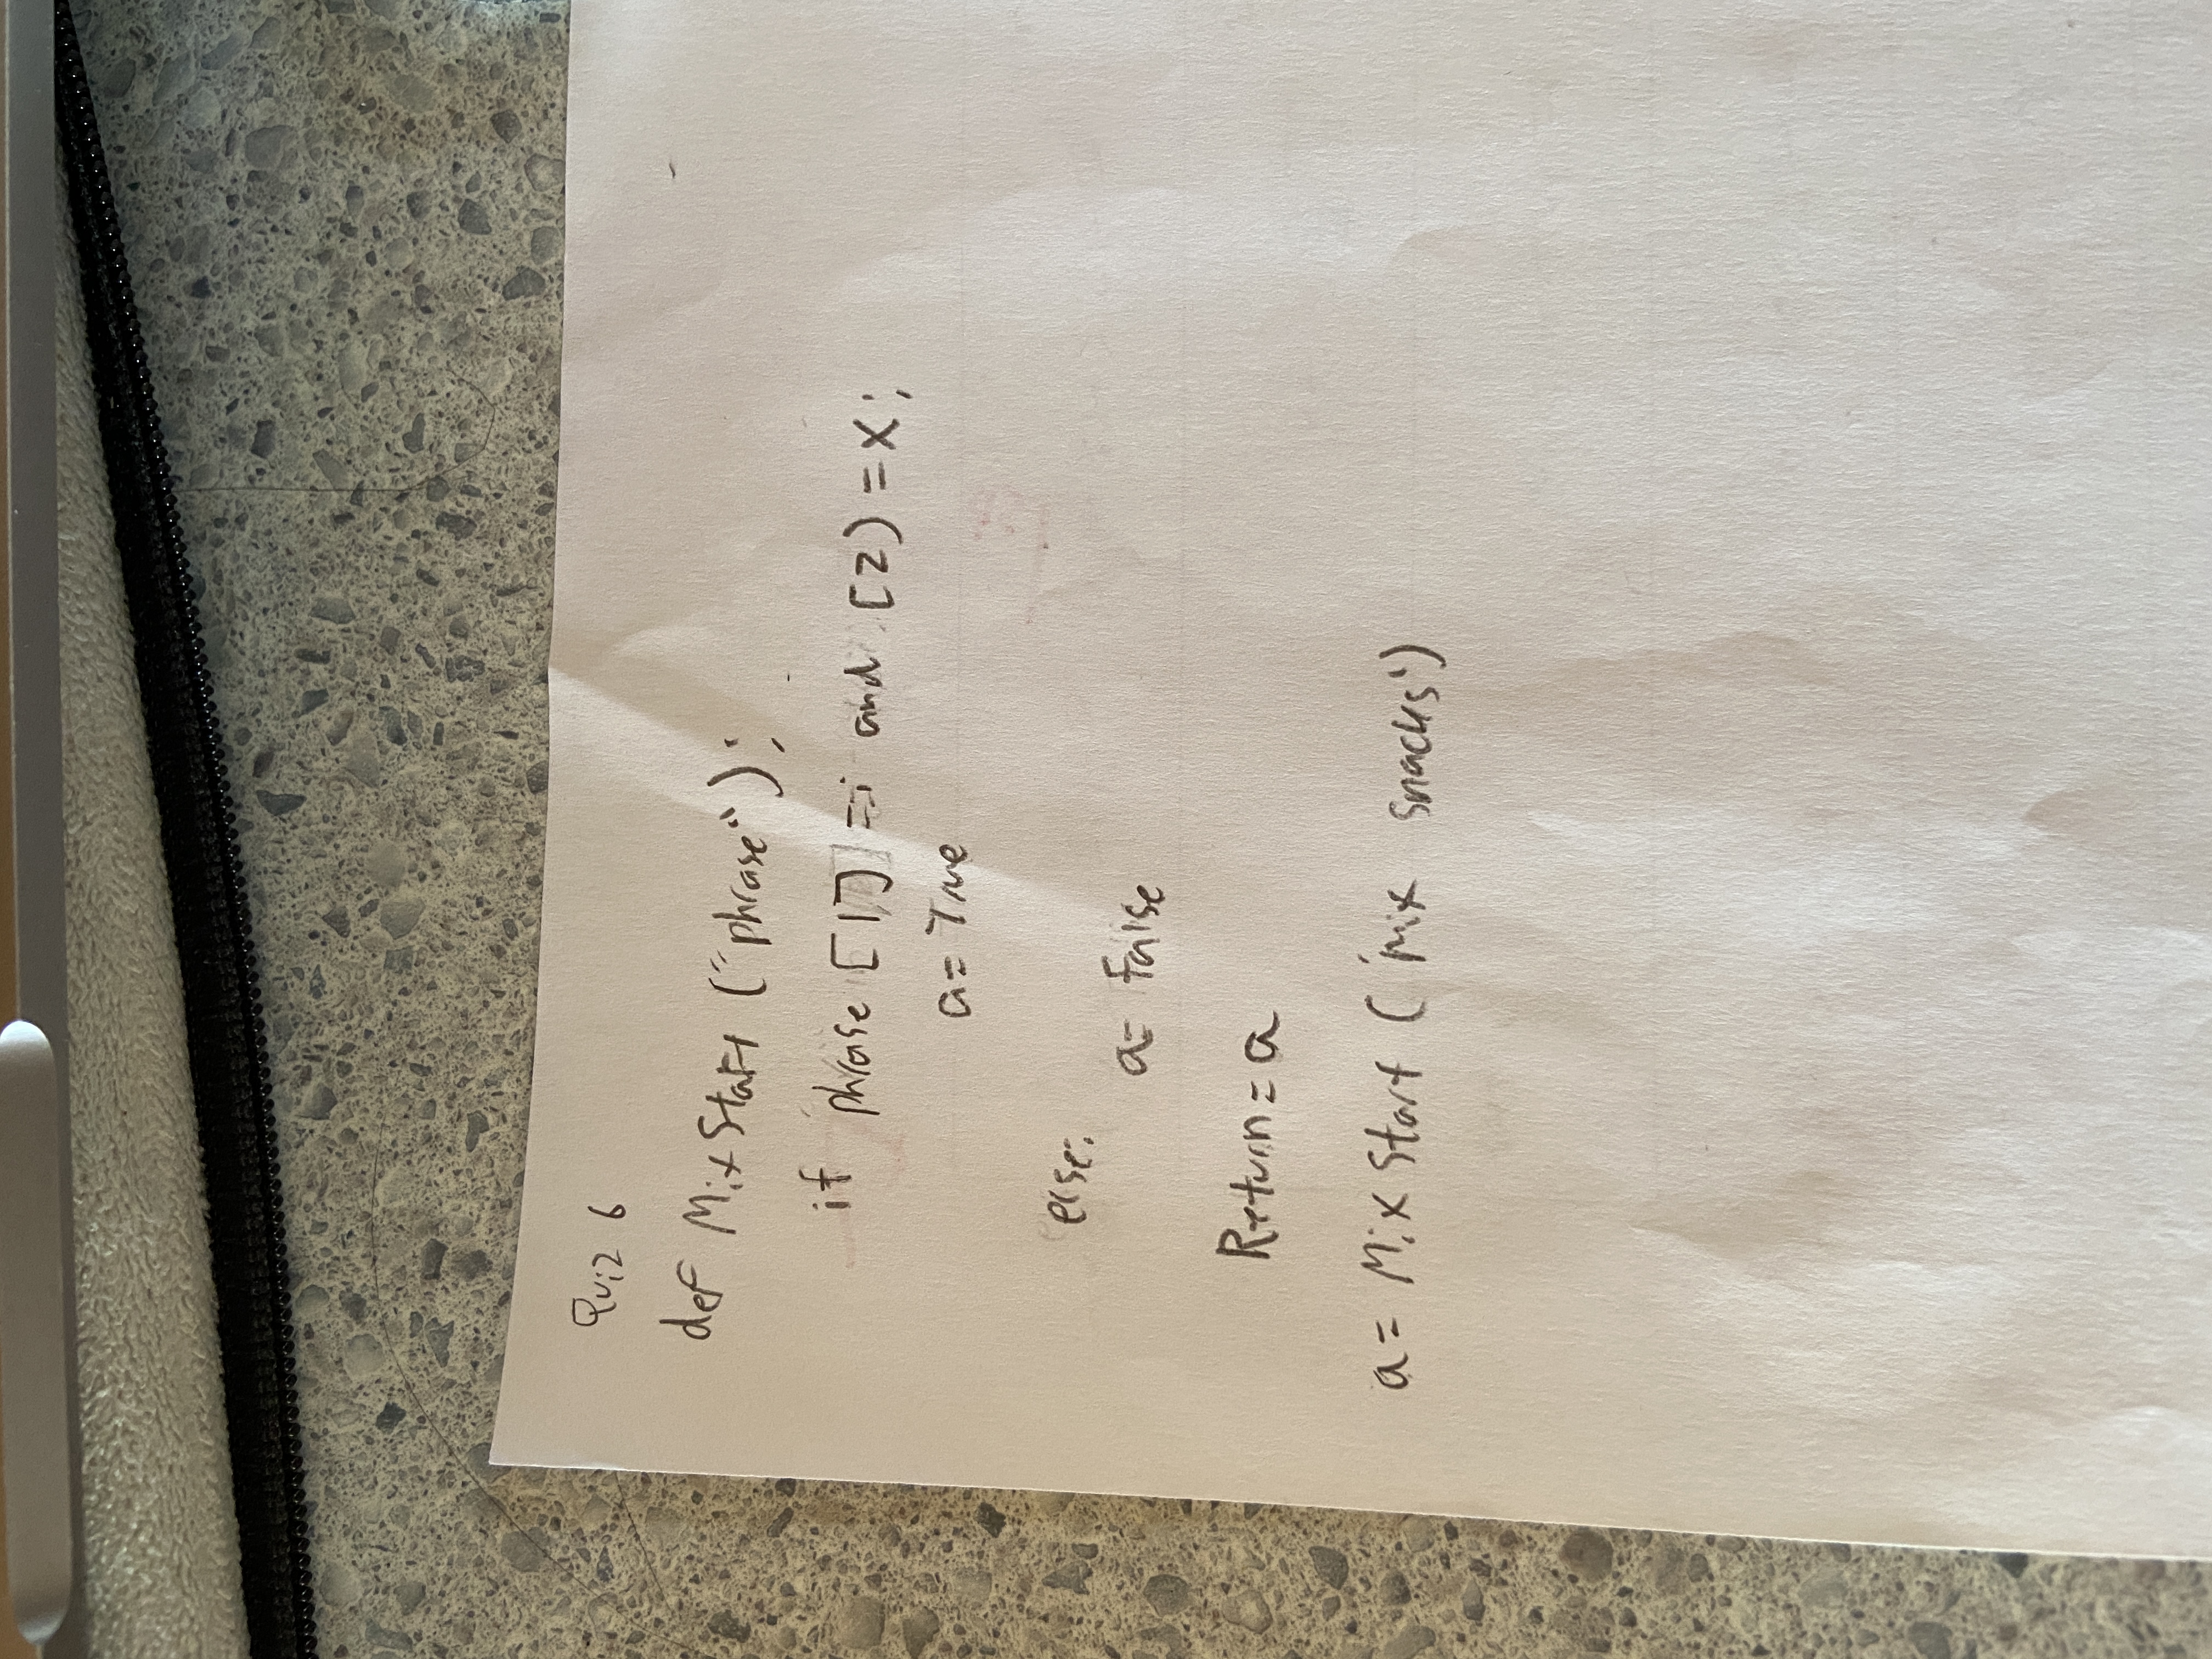 Quiz 6
def MixStart ("phrase");
if phrase [1] = i and [2) = x;
a = True
else:
a = false
Return = a
a = Mix Start ('Mix snacks')